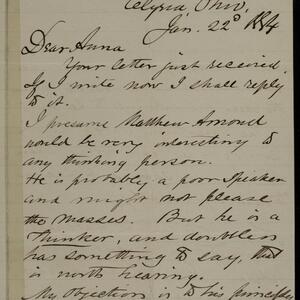 Elyria, Ohio,
Jan. 22d 1884
Dear Anna
Your letter just received.
If I write now I shall reply
to it.
I presume Matthew Arnond
would be very interesting to
any thinking person.
He is probably a poor speaker
and might not please
the masses. But he is a
Thinker, and doubtless
has something to say, that
is worth hearing.
My objection is to his principles